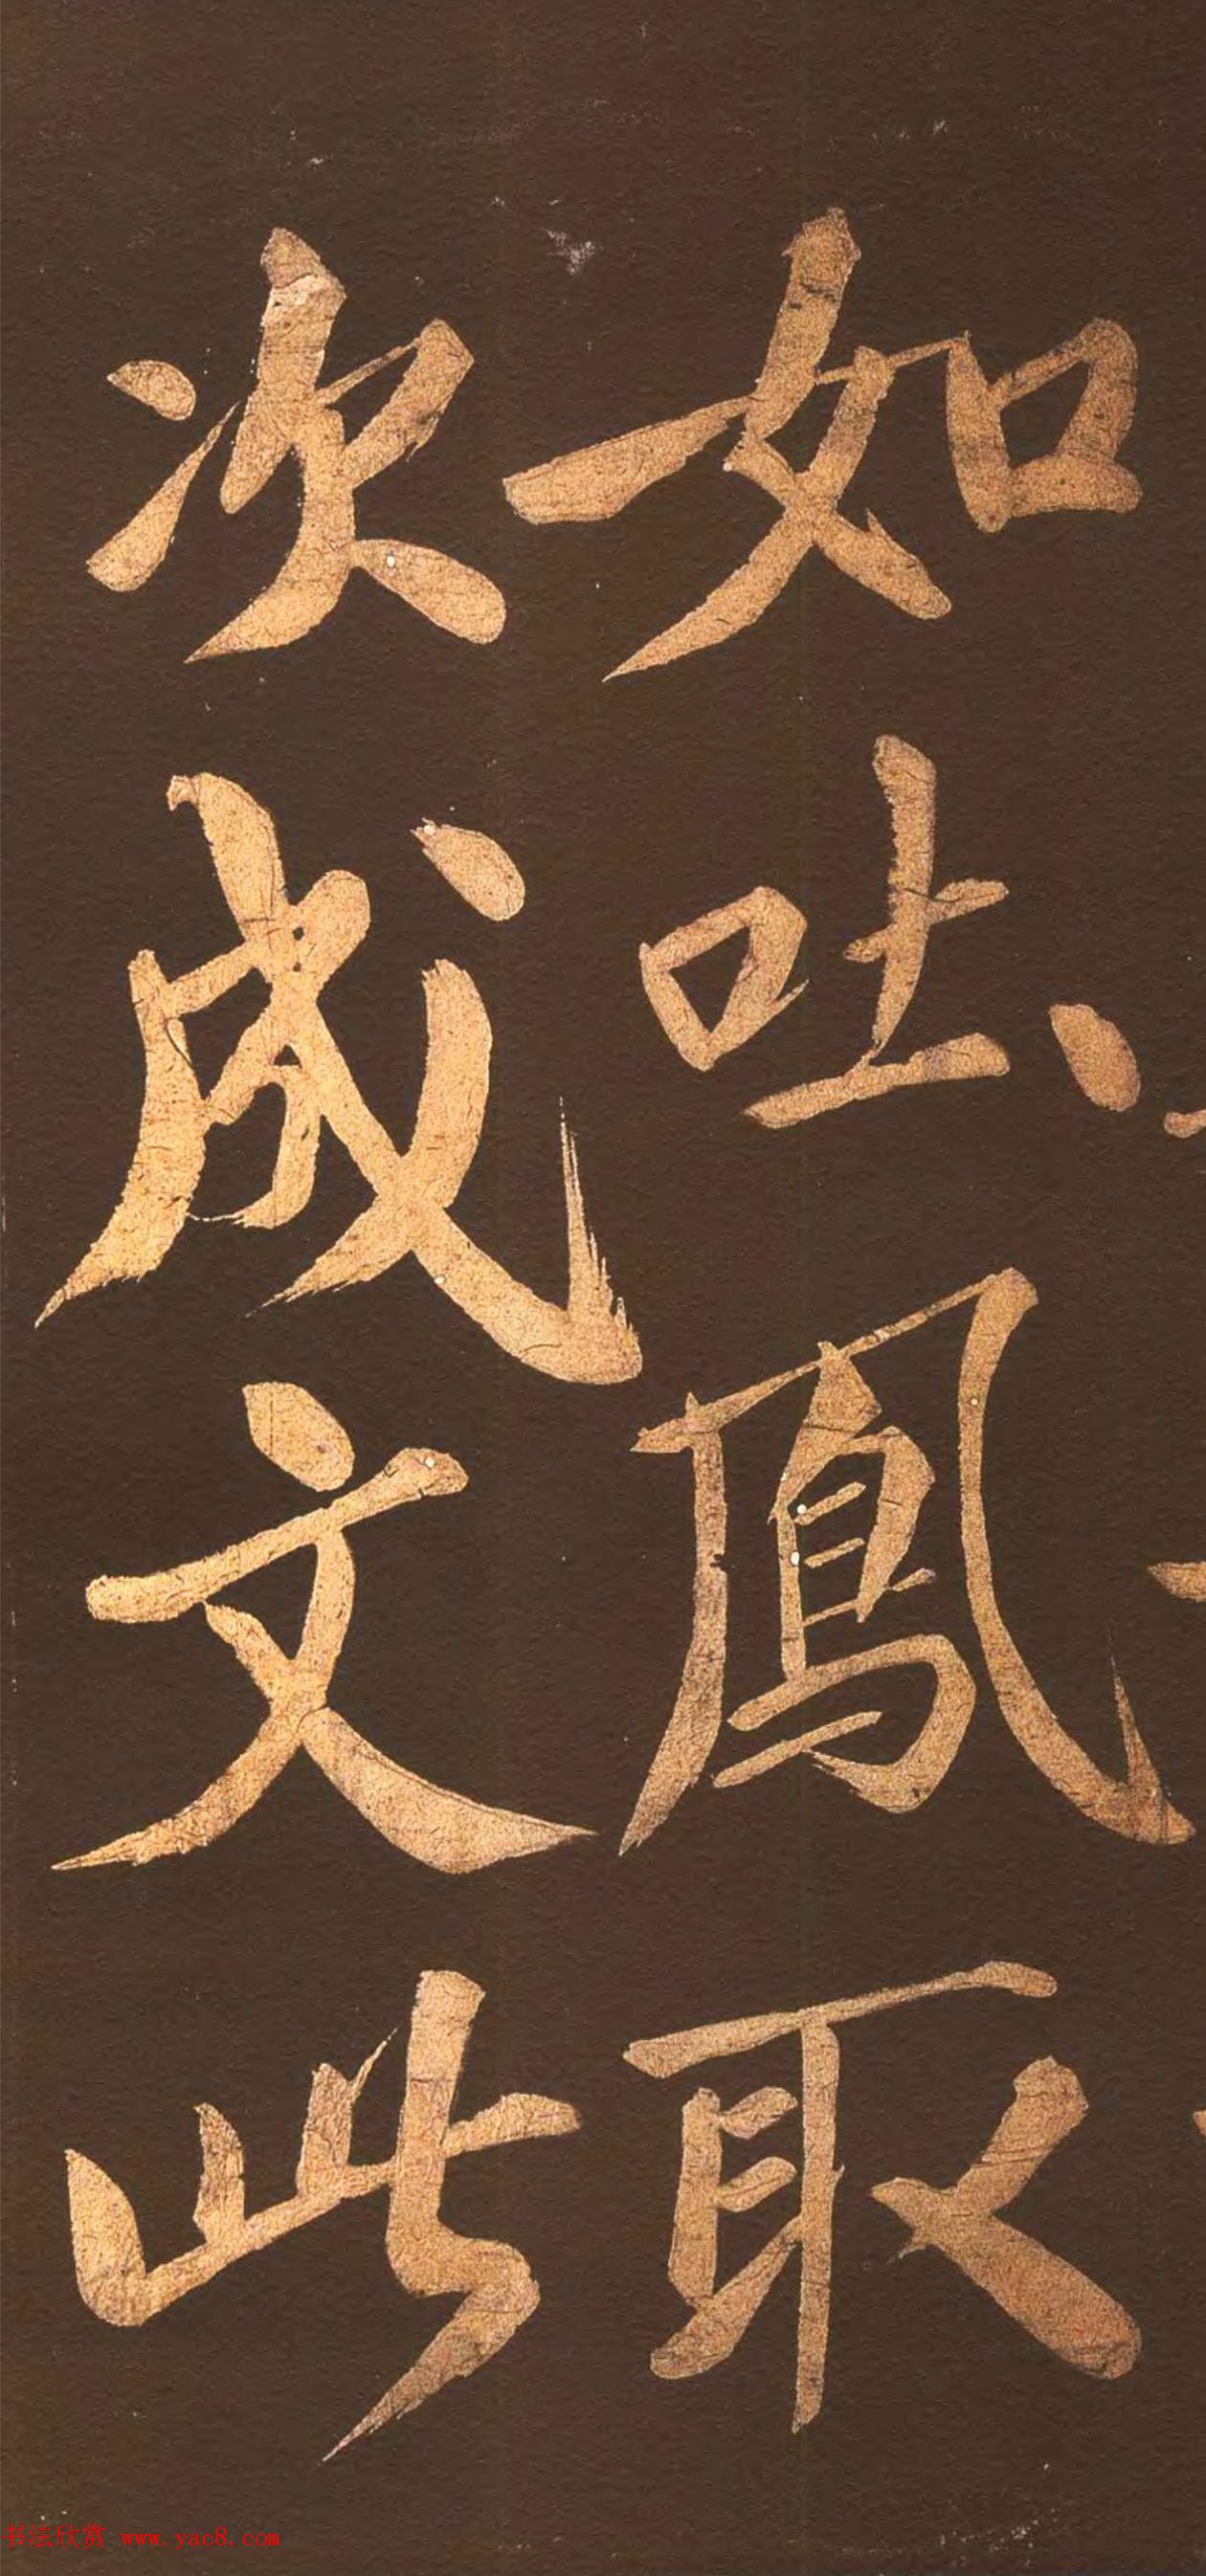 如吐鳳取
次成文此
书法欣赏 www.yac8.com